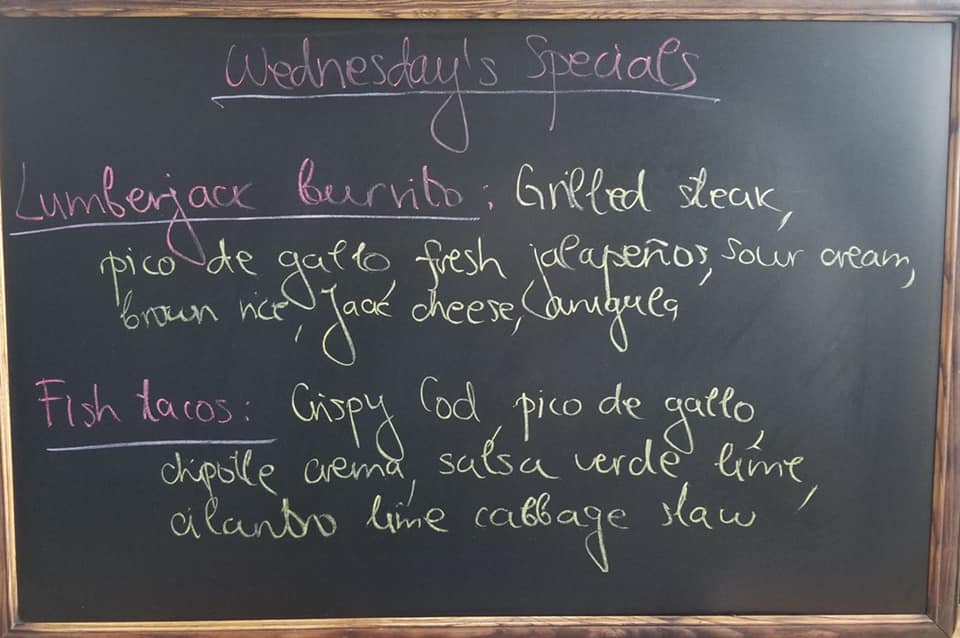 Wednesday's Specials
Lumberjack burrito: Grilled steak,
pico de gallo, fresh jalapeños, sour cream,
brown rice, Jack cheese, arugula
Fish tacos: Crispy Cod, pico de gallo,
chipotle crema, salsa verde, lime,
cilantro lime cabbage slaw